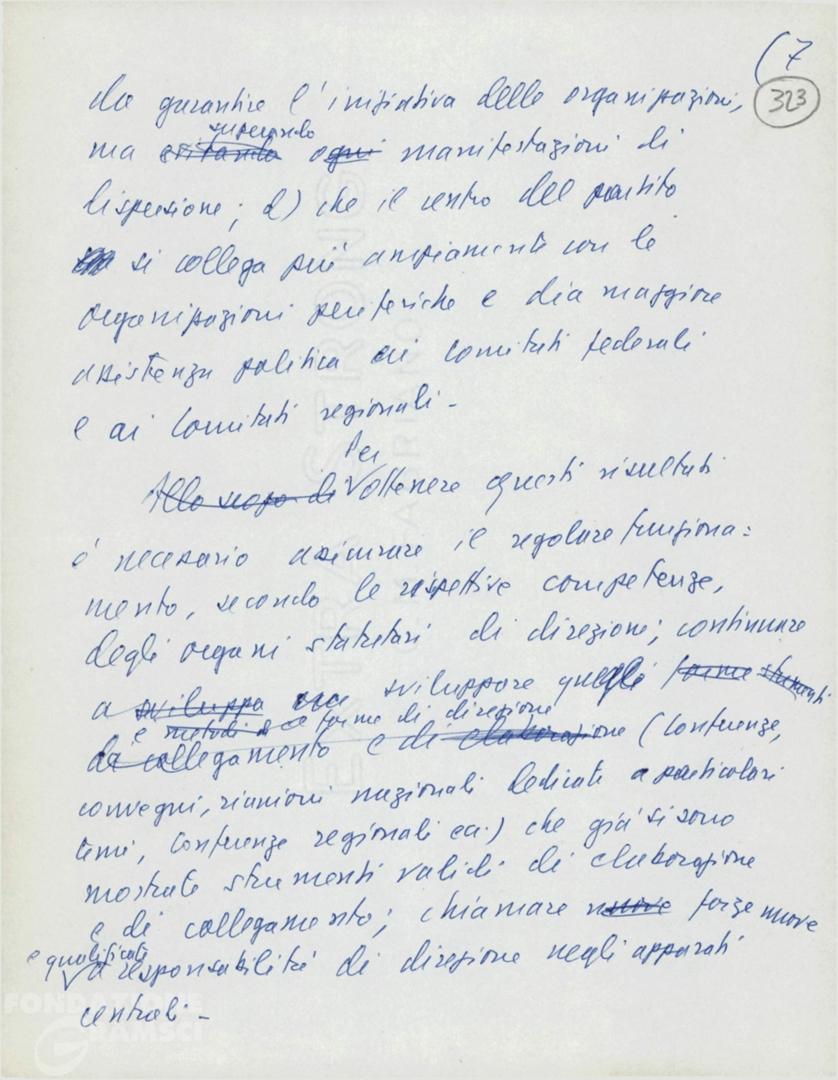 (7
323
da garantire l'iniziativa delle organizzazioni,
superando
ma evitando ogni manifestazioni di
dispersione; d) che il centro del partito
si collega più ampiamente con le
organizzazioni periferiche e dia maggiore
assistenza politica ai comitati federali
e ai Comitati regionali -
Per
Allo scopo di ottenere questi risultati
è necessario assicurare il regolare funziona=
mento, secondo le rispettive competenze,
degli organi statutari di direzione; continuare
a sviluppa sviluppare quegli forme strumenti
e metodi e forme di direzione
di collegamento e di elaborazione (Conferenze,
convegni, riunioni nazionali dedicate a particolari
temi, Conferenze regionali ecc.) che già si sono
mostrate strumenti validi di elaborazione
e di collegamento; chiamare nuove forze nuove
e qualificate
a responsabilità di direzione negli apparati
centrali -
FONDAZIONE
GRAMSCI
EXTRA STRONG